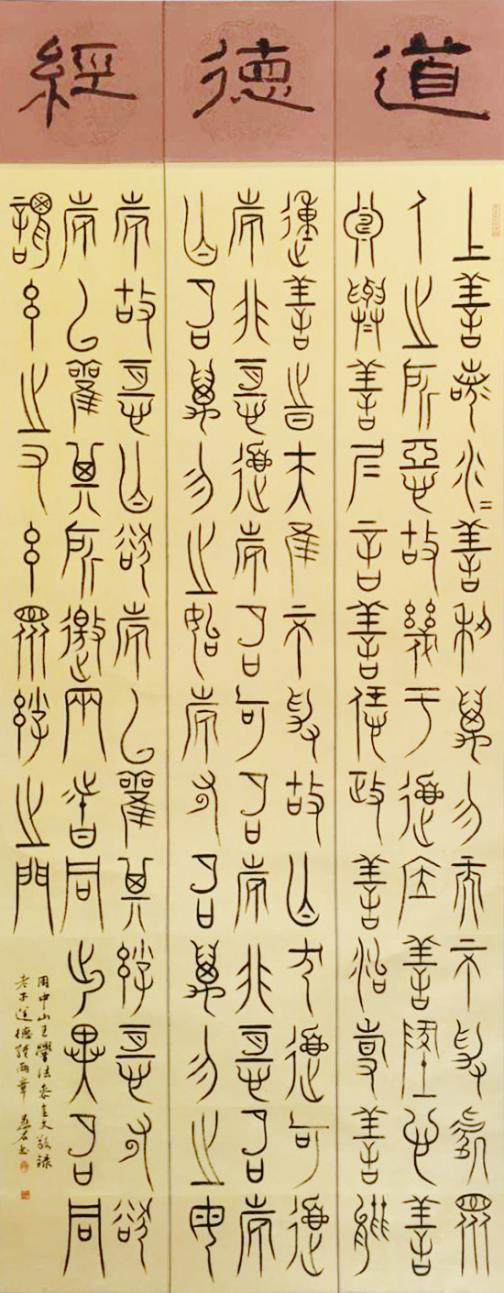 道德經
上善若水善利萬勿而不爭居眾
人之所惡故幾于道居善地心善
淵與善仁言善信政善治事善能
動善時夫唯不爭故亡尤道可道
也非恆道也名可名也非恆名也
亡名萬勿之始也有名萬勿之母
也故恆亡欲也以觀其妙恆有欲
也以觀其所徼兩者同出異名同
謂玄之又玄眾妙之門
用中山王法敬錄
老子道德經兩章